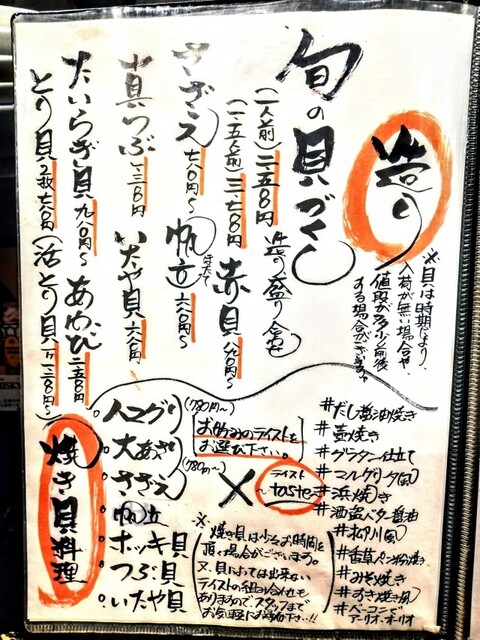 造り
※貝は時期により、
入荷が無い場合や、
値段が多少前後
する場合がございます。
旬の貝づくし
(一人前)二二五〇円
造り盛り合せ
さざえ 七八〇円～
帆立 六八〇円～
ほたて
赤貝 八九〇円～
真つぶ
いたや貝 六八〇円
たいらぎ貝 九八〇円～
あわび
とり貝2枚 七八〇円
(活とり貝
焼き貝料理
ハマグリ (780円～)
大あさり
さざえ (780円～)
帆立
ホッキ貝
つぶ貝
いたや貝
お好みのテイストを
お選び下さい。
×
テイスト
taste
#だし醤油焼き
#壷焼き
#グラタン仕立て
#マルゲリータ風
#浜焼き
#酒盗バター醤油
#柳川風
#香草パン粉焼き
#みそ焼き
#お好み焼き風
#ベーコンで
アーリオ・オーリオ
※焼き貝は少々お時間を
頂く場合がございます。
又、貝によっては出来ない
テイストの組み合わせも
ありますのでスタッフまで
お気軽にお尋ね下さい…!!